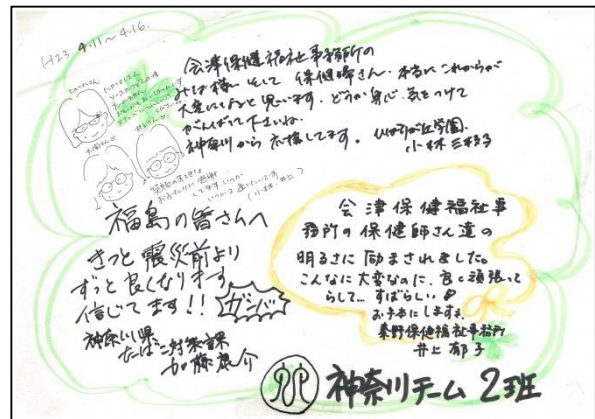 H23. 4.11～4.16.
会津保健福祉事務所の
みなさま そして 保健師さん. 本当にこれからが
大変になると思います. どうか身心 気をつけて
がんばって下さいね.
神奈川から 応援してます.
ひばりが丘学園.
小林
福島の皆さんへ
きっと 震災前より
ずっと 良くなります
信じてます!!
ガンバ
神奈川県
たばこ対策課
加藤
会津保健福祉事
務所の保健師さん達の
明るさに励まされました。
こんなに大変なのに、良く頑張って
らして… すばらしい
お手本にします。
秦野保健福祉事務所
井上 郁子
神奈川チーム 2班